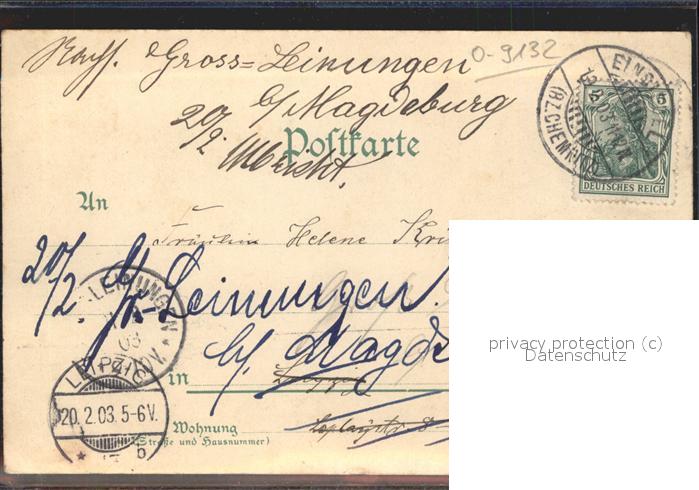 Gross=Leinungen
O-9132
b/Magdeburg
20/2
Postkarte
5
DEUTSCHES REICH
EINSIEDEL
(BZ. CHEMNITZ)
An
Fräulein Helene
20/2. Gr. Leinungen
b/ Magde
in Leipzig
LEINUNGEN
03
LEIPZIG
20. 2.03. 5-6V.
b
Wohnung
(Straße und Hausnummer)
privacy protection (c)
Datenschutz